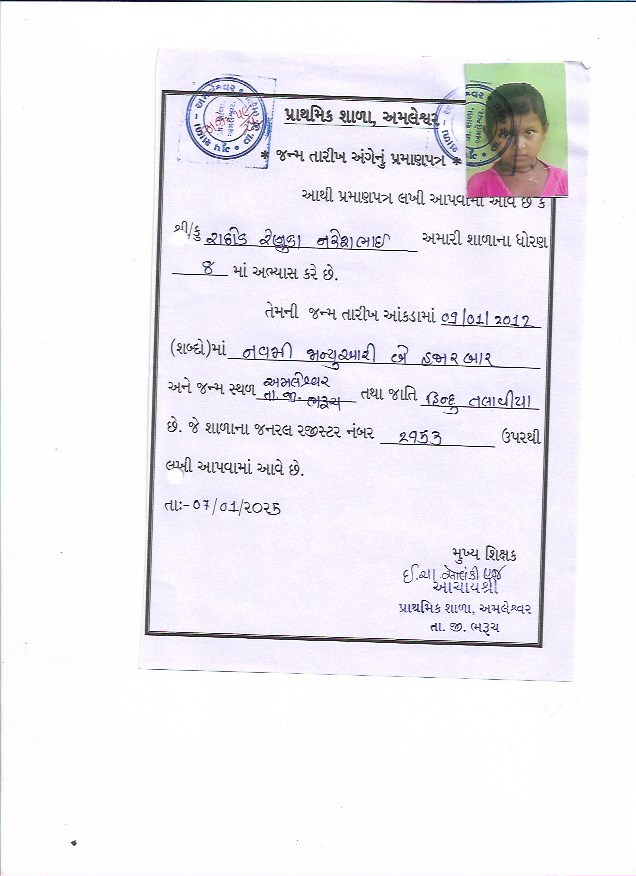 પ્રાથમિક શાળા, અમલેશ્વર
* જન્મ તારીખ અંગેનું પ્રમાણપત્ર *
આથી પ્રમાણપત્ર લખી આપવામાં આવે છે કે
શ્રી/કુ રાઠોડ રેણુકા નરેશભાઈ અમારી શાળાના ધોરણ
૪ માં અભ્યાસ કરે છે.
તેમની જન્મ તારીખ આંકડામાં 09/01/2012
(શબ્દો)માં નવમી જાન્યુઆરી બે હજાર બાર
અને જન્મ સ્થળ અમલેશ્વર તા.જી. ભરૂચ તથા જાતિ હિન્દુ તલાવીયા
છે. જે શાળાના જનરલ રજીસ્ટર નંબર ૨૧૫૩ ઉપરથી
લખી આપવામાં આવે છે.
તાઃ-૦7/૦1/૨૦૨૫
મુખ્ય શિક્ષક
ઈ.ચા. સોલંકી
આચાર્યશ્રી
પ્રાથમિક શાળા, અમલેશ્વર
તા. જી. ભરૂચ